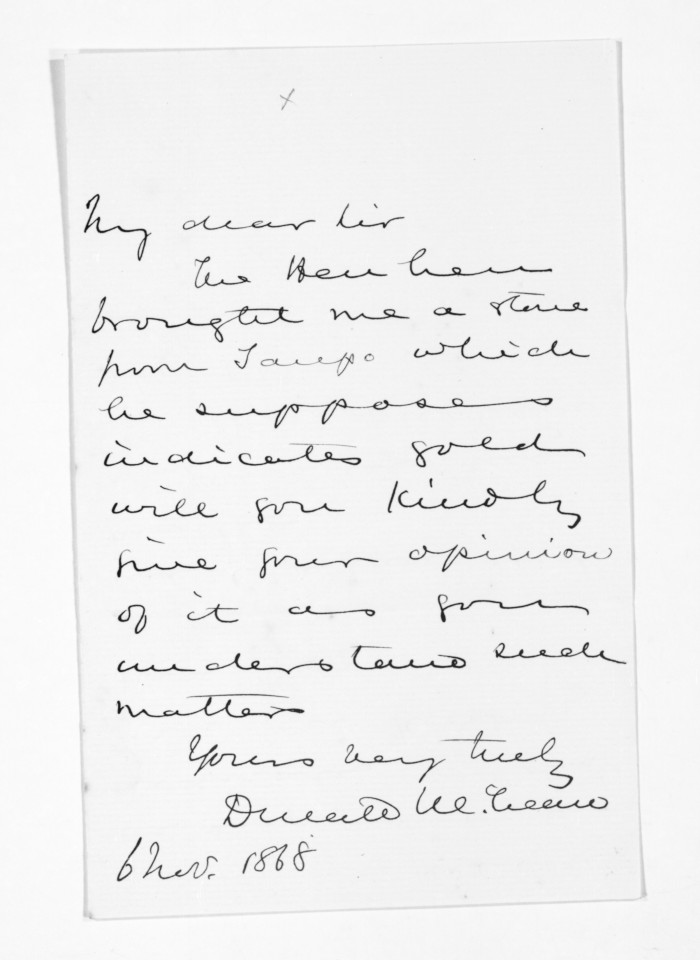 x
My dear Sir
The Heu heu
brought me a stone
from Taupo which
he supposes
indicates gold
will you kindly
give your opinion
of it as you
understand such
matters
Yours very truly
Donald McLean
6 Nov. 1868